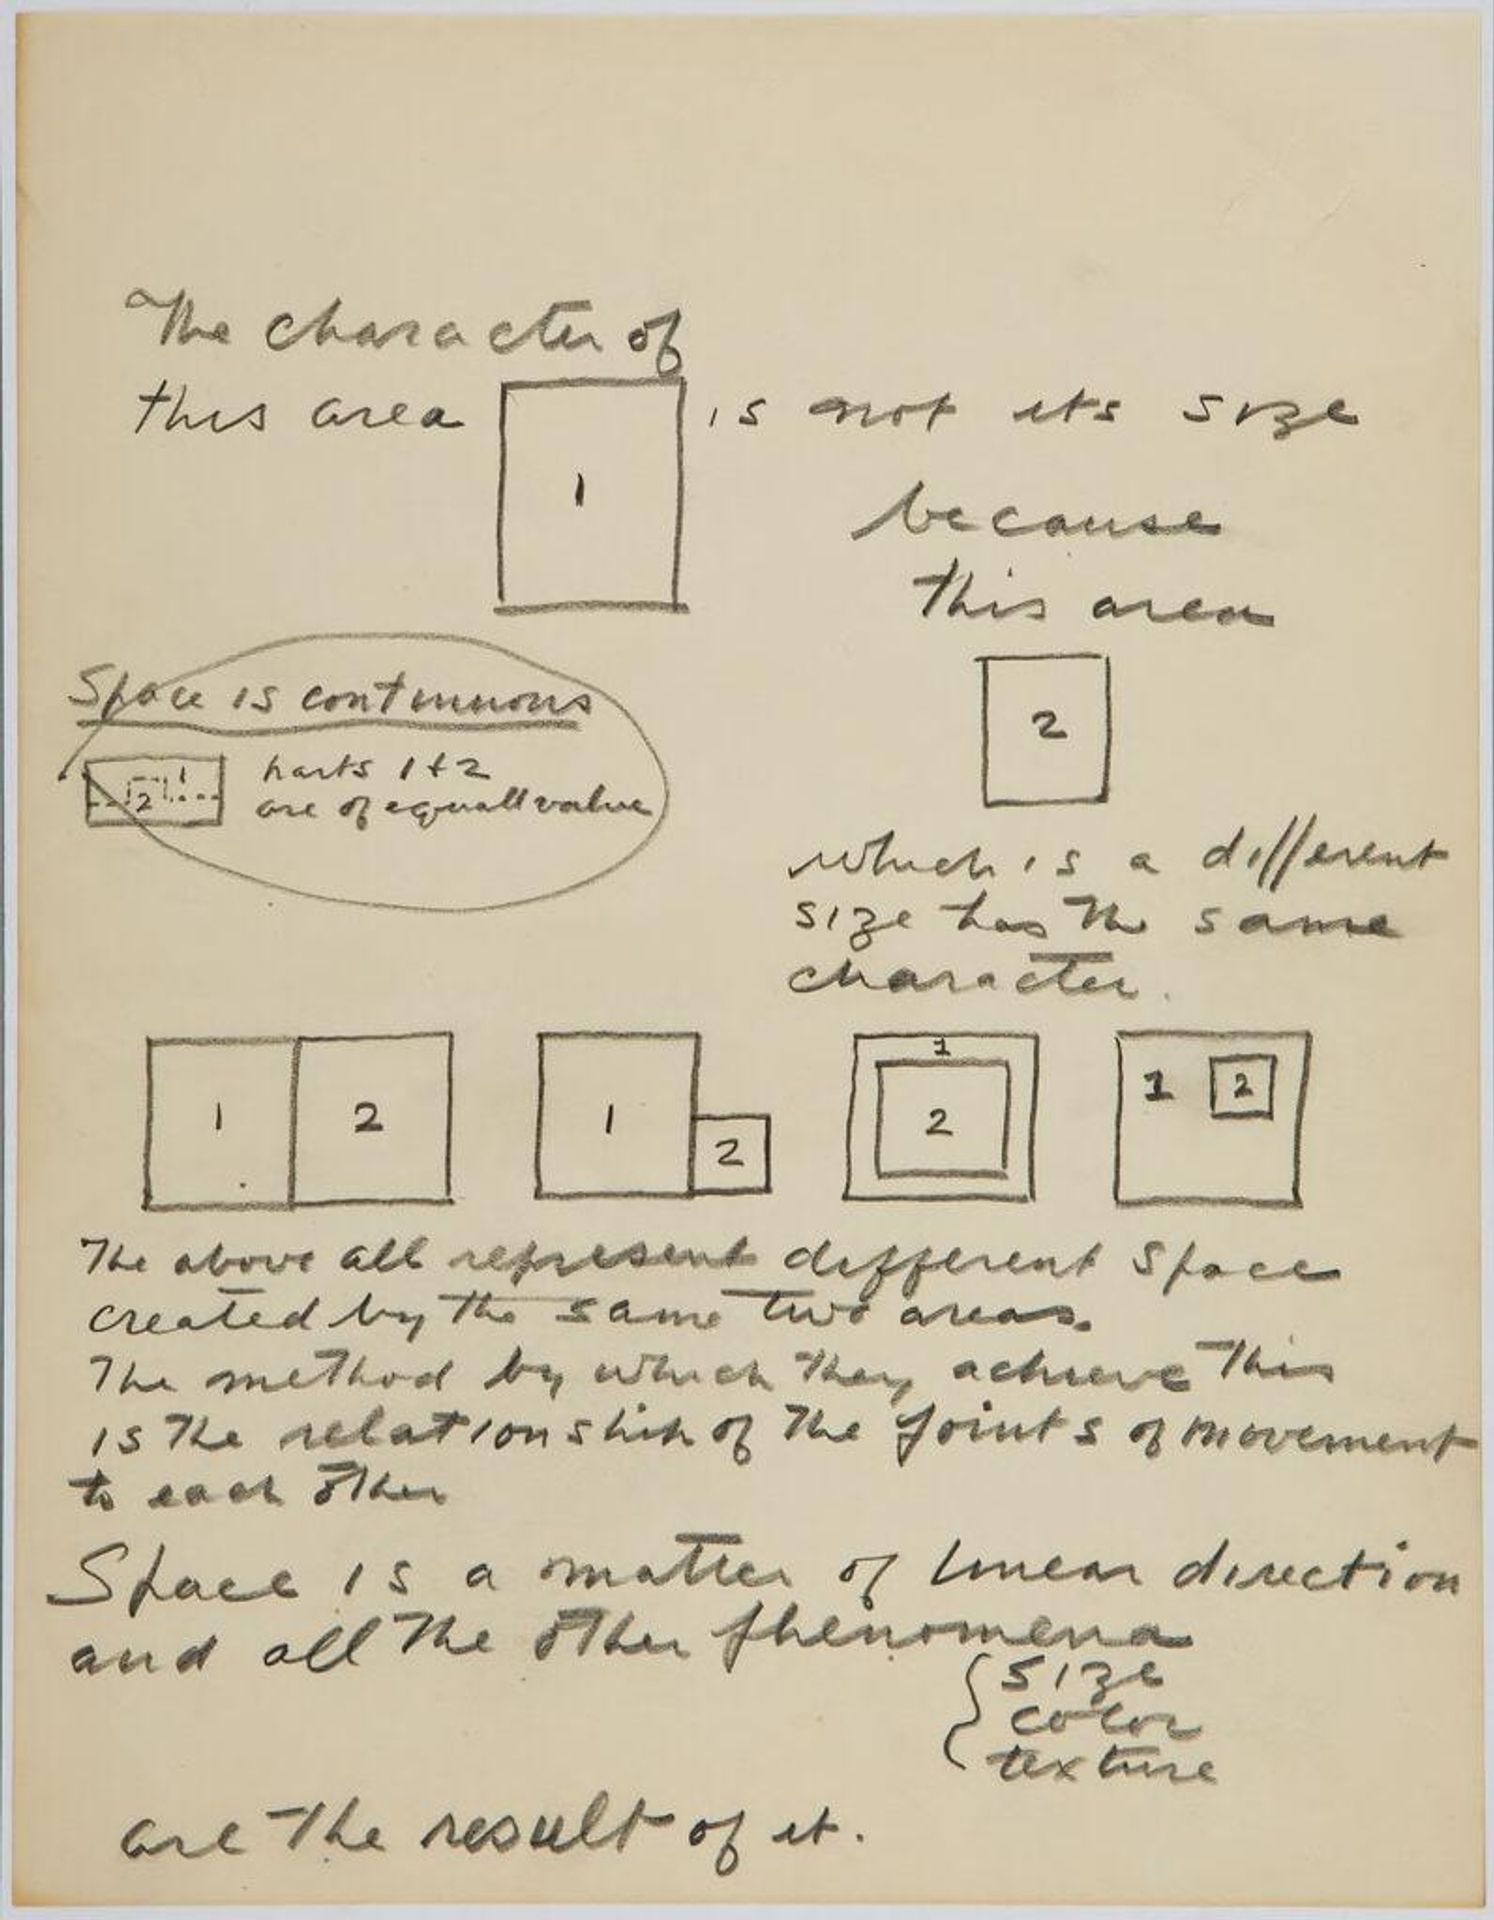 The character of
this area 1 is not its size
because
this area
2
Space is continuous
1
2
parts 1+2
are of equall value
which is a different
size has the same
character.
1 2 1 2 1 2 1 2
The above all represent different space
created by the same two areas.
The method by which they achieve this
is the relationship of the points of movement
to each other
Space is a matter of linear direction
and all the other phenomena
size
color
texture
are the result of it.